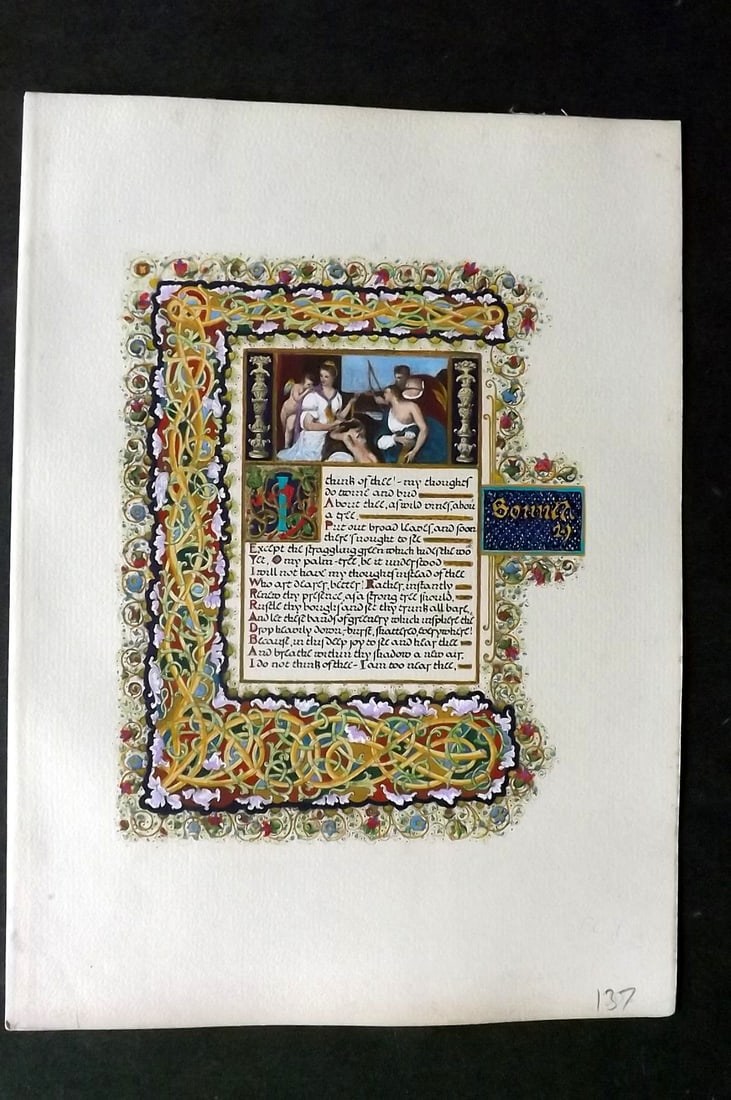 I think of thee! - my thoughts
do twine and bud
About thee, as wild vines, about
a tree,
Put out broad leaves, and soon
there's nought to see
Except the straggling green which hides the woo
Yet, O my palm-tree, be it understood
I will not have my thoughts instead of thee
Who art dearer, better! Rather, instantly
Renew thy presence, as a strong tree should,
Rustle thy boughs and set thy trunk all bare,
And let these bands of greenery which insphere thee
Drop heavily down,- burst, shattered, everywhere!
Because, in this deep joy to see and hear thee
And breathe within thy shadow a new air,
I do not think of thee - I am too near thee.
Sonnet
29
137